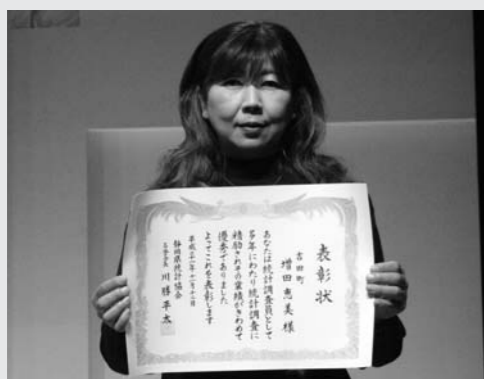 表彰状
吉田町
増田恵美様
あなたは統計調査員として
多年にわたり統計調査に
精励されその業績がきわめて
優秀でありました
よってこれを表彰します
平成二十一年十一月十二日
静岡県統計協会
名誉会長 川勝平太